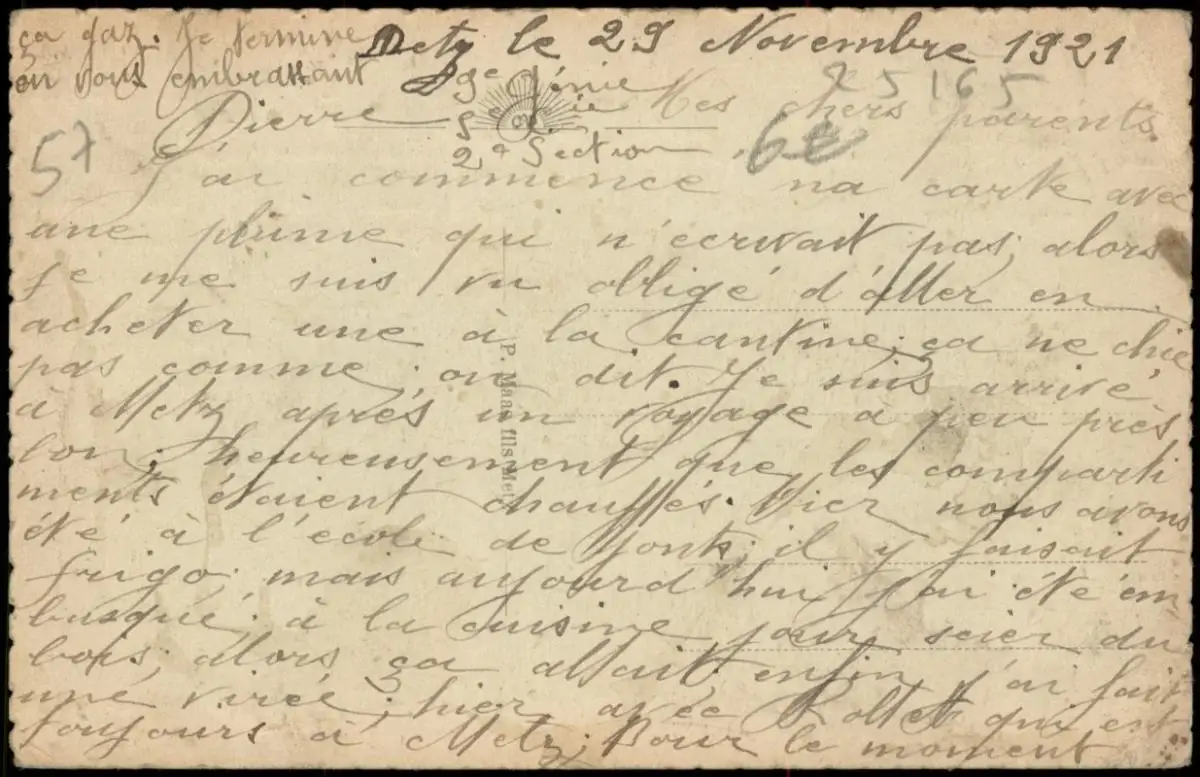 Metz le 29 Novembre 1921
9e Génie
5e Cie
2e Section
25165
57
6e
Mes chers parents.
J'ai commencé na carte avec
une plume qui n'écrivait pas, alors
je me suis vu obligé d'aller en
acheter une à la cantine; ça ne chie
pas comme, on dit. Je suis arrivé
à Metz après un voyage à peu près
bon; heureusement que les comparti
ments étaient chauffés. Hier nous avons
été à l'école de ponts; il y faisait
frigo mais aujourd'hui j'ai été em
busqué à la cuisine pour scier du
bois, alors ça allait, enfin j'ai fait
une virée; hier avec qui est
toujours à Metz; Pour le moment
ça gaz. Je termine
en vous embrassant
Pierre
P. Maas fils Metz